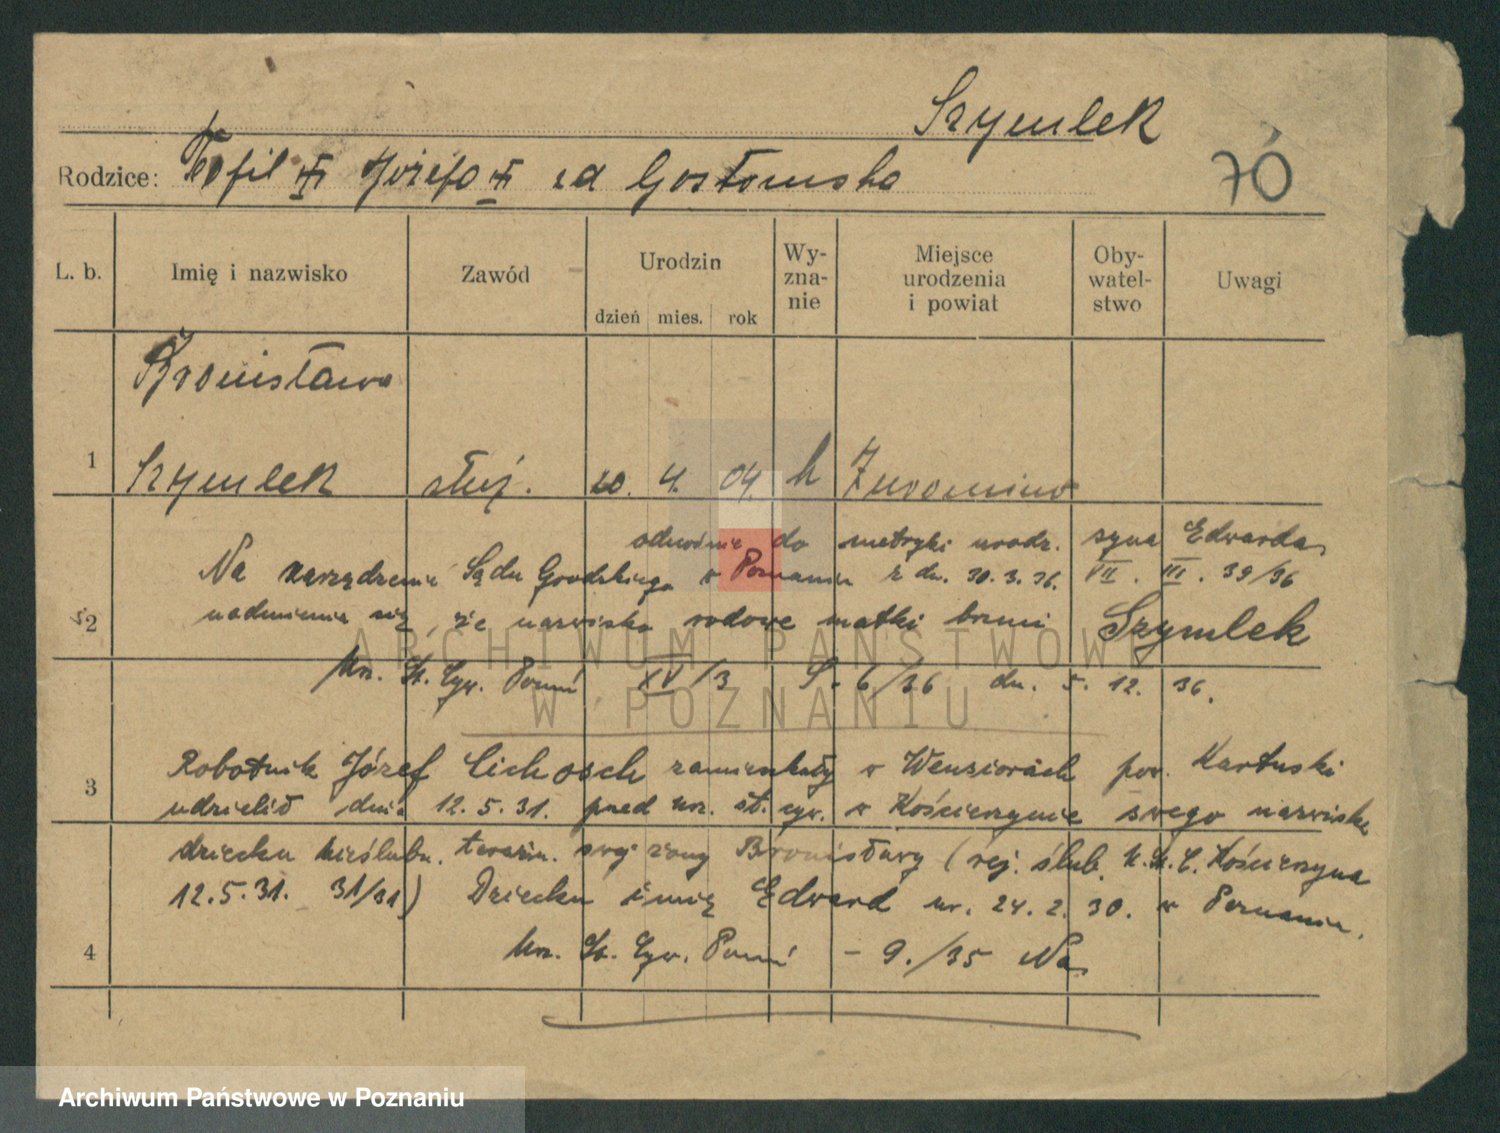 Szymlek
Rodzice: Teofil Józefa zd Gostomska
70
L. b. Imię i nazwisko Zawód Urodzin Wy-zna-nie Miejsce urodzenia i powiat Oby-watel-stwo Uwagi
dzień mies. rok
Bronisława
1 Szymlek służ. 20. 4. 04. k Żuromino
odnośnie do metryki urodz. syna Edwarda
Na zarządzenie Sądu Grodzkiego w Poznaniu z dn. 30. 3. 36. VII. III. 39/36
2 nadmienia się, że nazwisko rodowe matki brzmi Szymlek
Urz. St. Cyw. Poznań XIV/3 S. 6/36 dn. 5. 12. 36.
ARCHIWUM PAŃSTWOWE
W POZNANIU
3 Robotnik Józef Cichosch zamieszkały w Wensiorach pow. Kartuski
udzielił dnia 12. 5. 31. przed urz. st. cyw. w Kościerzynie swego nazwiska
dziecku nieślubn. swej żony Bronisławy (rej. ślub. U. St. C. Kościerzyna
12. 5. 31. 31/31) Dziecku imię Edward ur. 24. 2. 30. w Poznaniu.
4 Urz. St. Cyw. Poznań – 9./35 Na
Archiwum Państwowe w Poznaniu